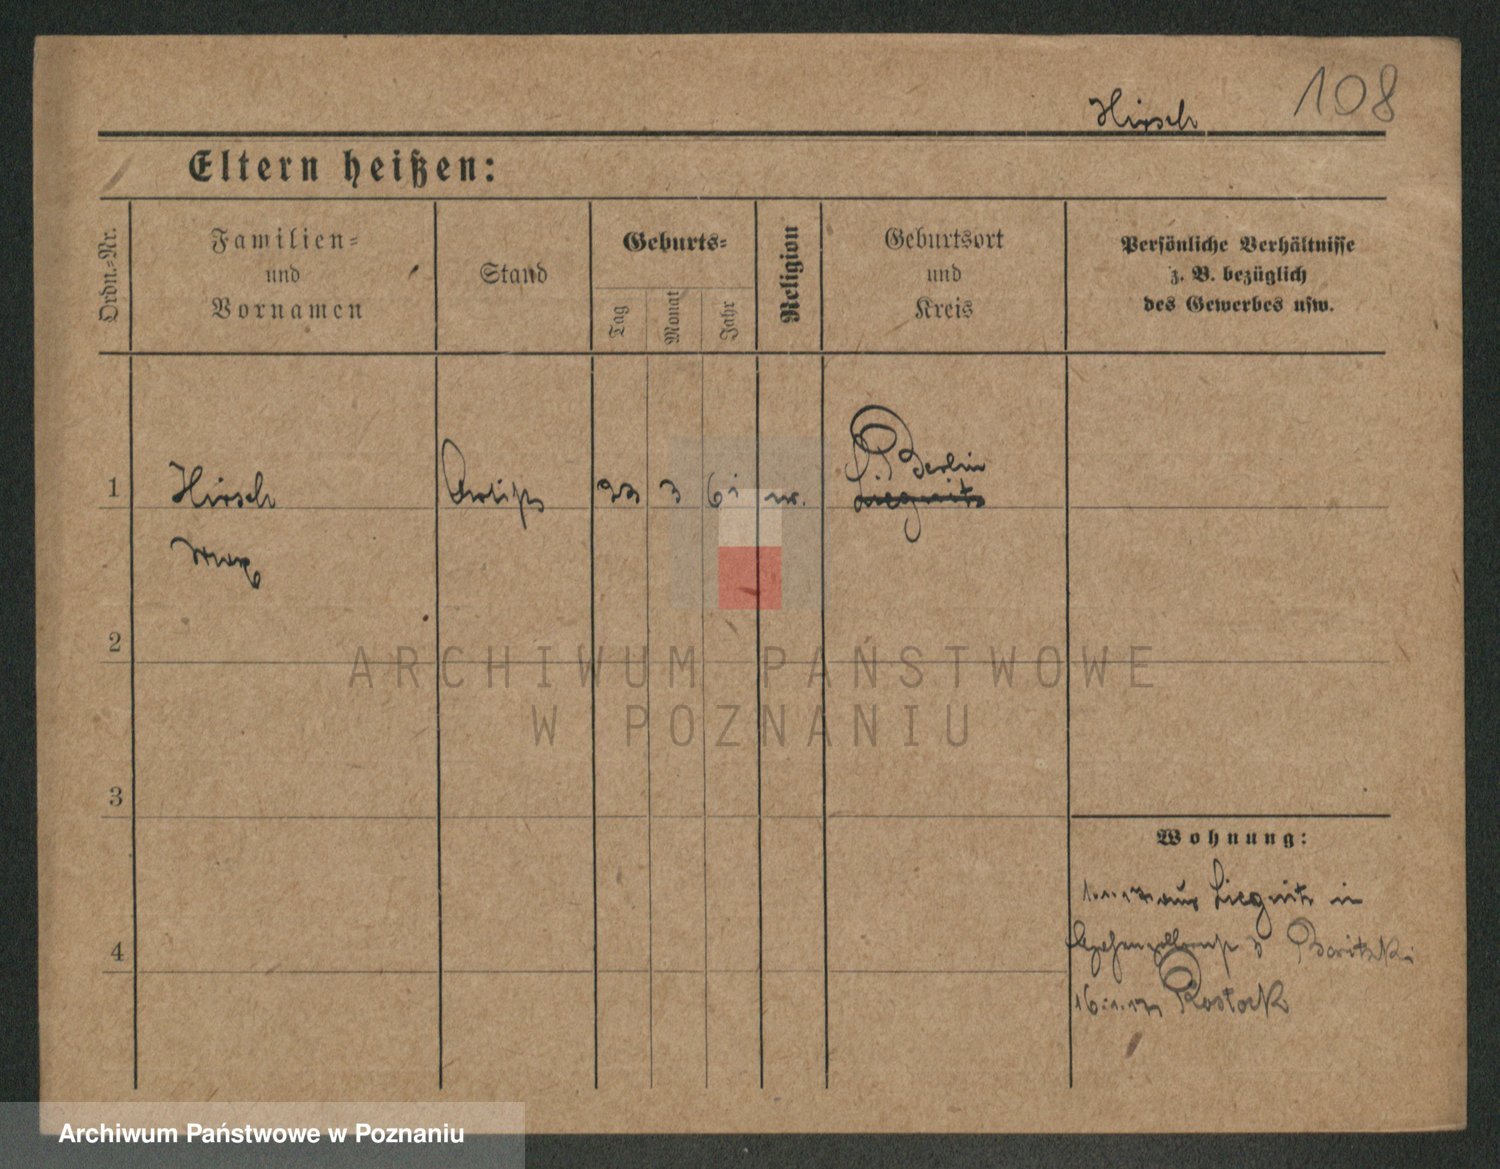 Hirsch 108
Eltern heißen:
Ordn.-Nr.
Familien-
und
Vornamen
Stand
Geburts-
Tag
Monat
Jahr
Religion
Geburtsort
und
Kreis
Persönliche Verhältnisse
z. B. bezüglich
des Gewerbes usw.
1
Hirsch
Max
Artist
23 3 61
Berlin
Liegnitz
2
ARCHIWUM PAŃSTWOWE
W POZNANIU
3
4
Wohnung:
aus Liegnitz in
3 Boritzki
Rostock
Archiwum Państwowe w Poznaniu